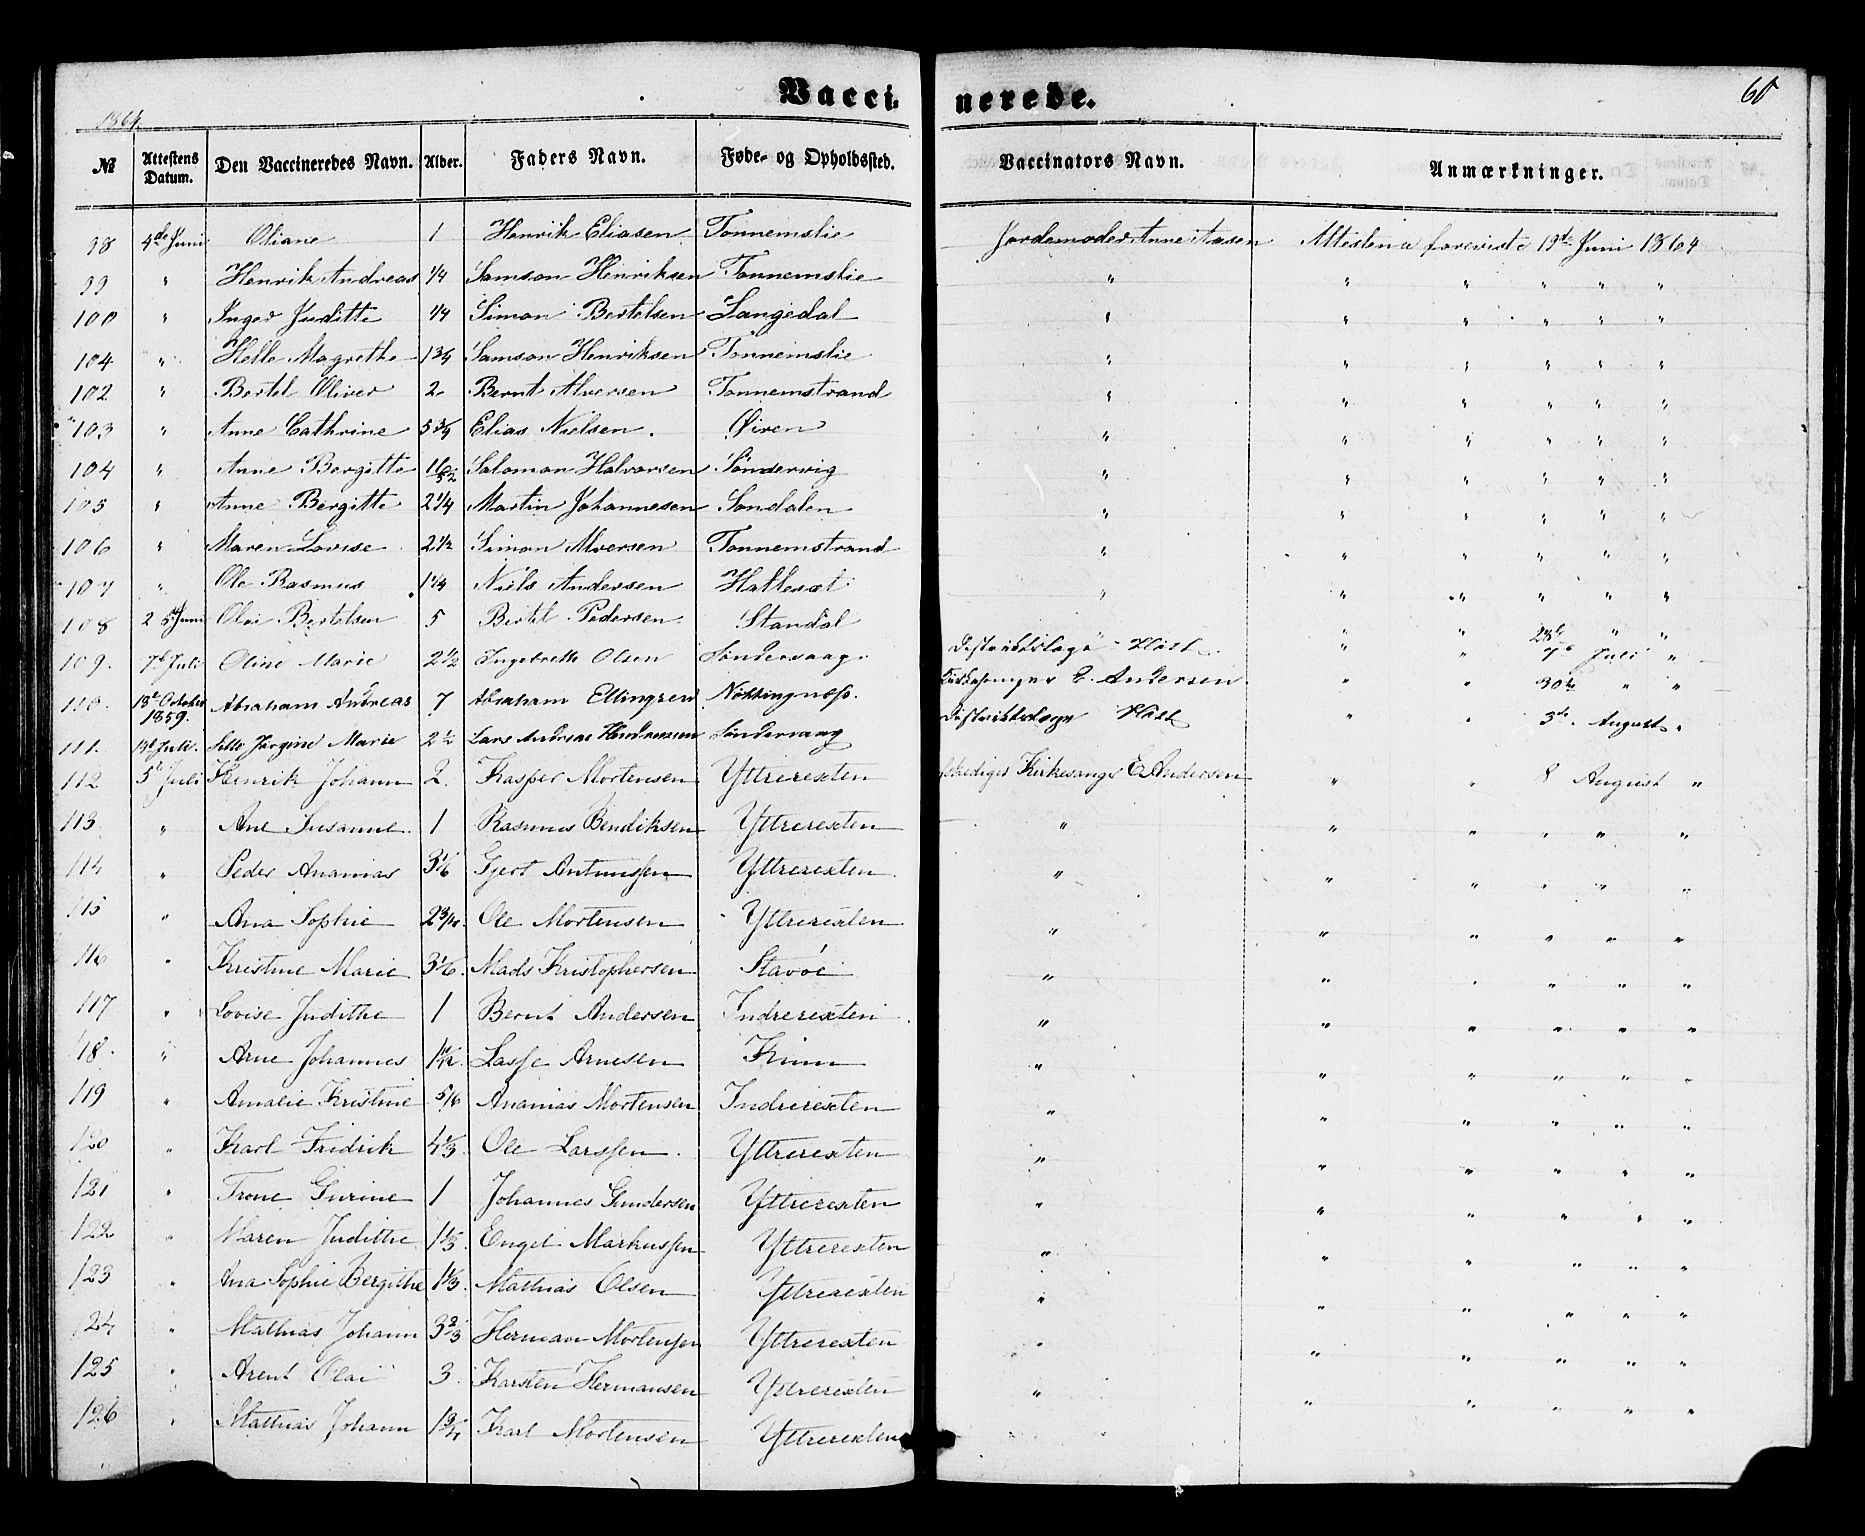 Vaccinerede.
60
1864.
№ Attestens Datum. Den Vaccineredes Navn. Alder. Faders Navn. Føde- og Opholdssted. Vaccinators Navn. Anmærkninger.
98 4de Juni Oliane 1 Henrik Eliasen Tonnemslie Jordemoder Anne Aasen Attesterne foreviste 19de Juni 1864
99 " Henrik Andreas 1/4 Samson Henriksen Tonnemslie " " " " " "
100 " Inger Juditte 1/4 Simon Bertelsen Langedal " " " " " "
104 " Helle Magrethe 1 3/4 Samson Henriksen Tonnemslie " " " " " "
102 " Bertel Oliver 2 Bernt Alversen Tonnemstrand " " " " " "
103 " Anne Cathrine 5 3/4 Elias Nielsen. Øiren " " " " " "
104 " Anne Bergitte Salomon Halvorsen Søndervig " " " " " "
105 " Anne Bergitte 2 1/4 Martin Johannesen Sandalen " " " " " "
106 " Maren Lovise 2 1/2 Simon Alversen Tonnemstrand " " " " " "
107 " Ole Rasmus 1 1/4 Niels Andersen Hatleset " " " " " "
108 25 Juni Olai Bertelsen 5 Bertel Pedersen Standal " " 28de " "
109. 7de Juli Oline Marie 2 1/2 Ingebreth Olsen Søndervaag. Distriktslæge Höst " " 7de Juli "
110. 18de October 1859. Abraham Andreas 7 Abraham Ellingsen Nekkingnæs. Kirkesanger E. Andersen. " " 30te " "
111. 19de Juli. Jørgine Marie 2 1/2 Lars Andreas Søndervaag Distriktslæge Höst " " 3de August "
112 5te Juli Henrik Johann 2. Kasper Mortensen Yttrerexten Kirkesanger E. Andersen " " 8 August "
113 " Ane Susanne. 1 Rasmus Bendiksen Yttrerexten " " " " " "
114 " Peder Ananias 3 1/6 Gjert Antonissen Yttrerexten. " " " " " "
115 " Ana Sophie 2 3/10 Ole Mortensen Yttrerexten " " " " " "
116 " Kristine Marie 3 1/6. Mads Kristophersen Stavøe " " " " " "
117 " Lovise Judithe 1 Bernt Andersen Indrerexten " " " " " "
118. " Arne Johannes Lasse Arnesen Kinn " " " " " "
119 " Amalie Kristine 5/6 Ananias Mortensen Indrerexten " " " " " "
120 " Karl Fridrik 4 1/3. Ole Larssen. Yttrerexten " " " " " "
121 " Trone Gurine 1 Johannes Gundersen Yttrerexten " " " " " "
122 " Maren Judithe 1 1/3. Engel Markussen Yttrerexten " " " " " "
123 " Ana Sophie Bergithe 1 1/3. Mathias Olsen Yttrerexten " " " " " "
124 " Mathias Johann 3 2/3 Herman Mortensen Yttrerexten " " " " " "
125 " Arent Olai 3. Karsten Hermansen Yttrerexten " " " " " "
126 " Mathias Johann 1 3/4 Karl Mortensen Yttrerexten " " " " "